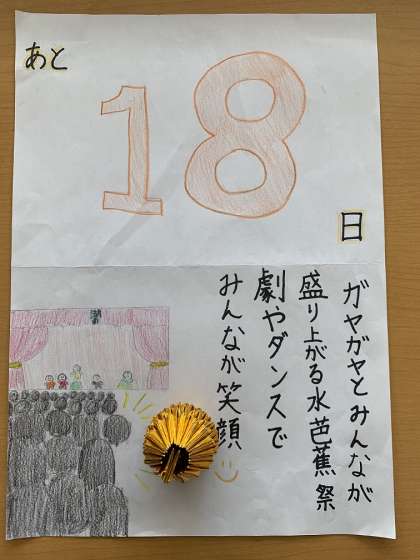 あと
18
日
ガヤガヤとみんなが
盛り上がる水芭蕉祭
劇やダンスで
みんなが笑顔